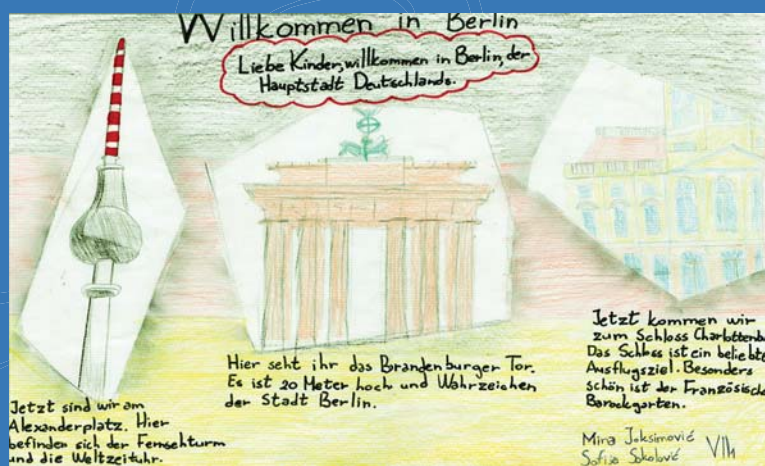 Willkommen in Berlin
Liebe Kinder, willkommen in Berlin, der
Hauptstadt Deutschlands.
Jetzt sind wir am
Alexanderplatz. Hier
befinden sich der Fernsehturm
und die Weltzeituhr.
Hier seht ihr das Brandenburger Tor.
Es ist 20 Meter hoch und Wahrzeichen
der Stadt Berlin.
Jetzt kommen wir
zum Schloss Charlottenbu
Das Schloss ist ein beliebte
Ausflugsziel. Besonders
schön ist der Französische
Barockgarten.
Mira Joksimović
Sofija Sokolović